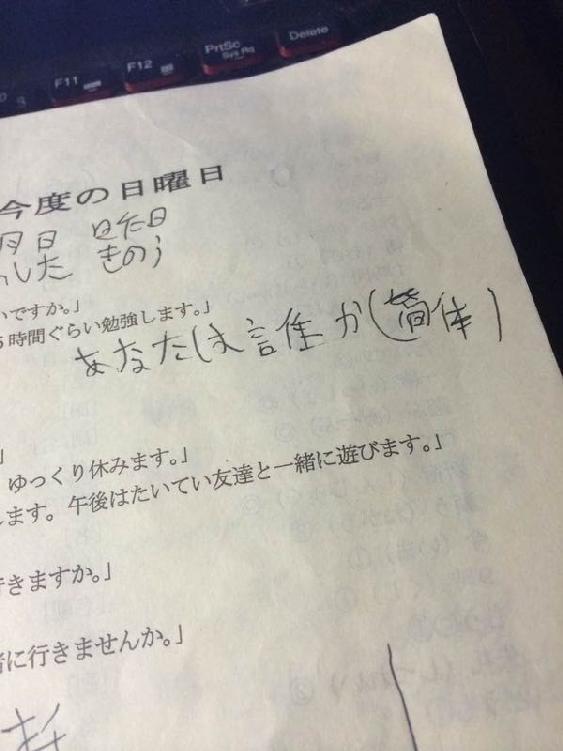 F11 F12 PrtSc Sys Rq Delete
今度の日曜日
明日 昨日
した きのう
いですか。」
5時間ぐらい勉強します。」
あなたは誰か(简体)
」
ゆっくり休みます。」
します。午後はたいてい友達と一緒に遊びます。」
行きますか。」
緒に行きませんか。」